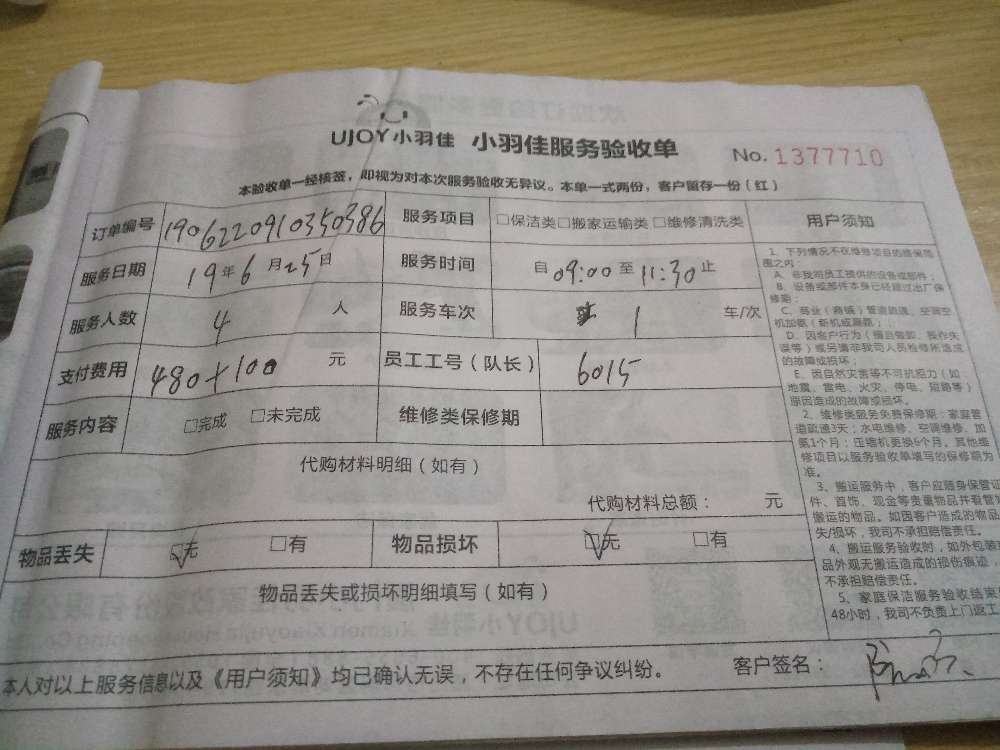 UJOY小羽佳 小羽佳服务验收单 No. 1377710
本验收单一经核签，即视为对本次服务验收无异议。本单一式两份，客户留存一份（红）
订单编号 1906220910350386 服务项目 □保洁类□搬家运输类□维修清洗类
服务日期 19年6月25日 服务时间 自09:00至11:30止
服务人数 4 人 服务车次 1 车/次
支付费用 480+100 元 员工工号（队长） 6015
服务内容 □完成 □未完成 维修类保修期
代购材料明细（如有）
代购材料总额： 元
物品丢失 ☑无 □有 物品损坏 ☑无 □有
物品丢失或损坏明细填写（如有）
本人对以上服务信息以及《用户须知》均已确认无误，不存在任何争议纠纷。 客户签名：
用户须知
1、下列情况不在维修项目的维保范
围之内：
A、非我司员工提供的设备或部件；
B、设备或部件本身已经超过出厂保
修期；
C、商业（商铺）管道疏通、空调空
机加氨（新机或漏氨）；
D、因客户行为（擅自装卸、操作失
误等）或另请非我司人员检修所造成
的故障或损坏；
E、因自然灾害等不可抗拒力（如
地震、雷电、火灾、停电、短路等）
原因造成的故障或损坏。
2、维修类服务免费保修期：家庭管
道疏通3天；水电维修、空调维修、加
氨1个月；压缩机更换6个月。其他维
修项目以服务验收单填写的保修期为
准。
3、搬运服务中，客户应随身保管证
件、首饰、现金等贵重物品并看管
搬运的物品。如因客户造成的物品
失/损坏，我司不承担赔偿责任。
4、搬运服务验收时，如外包装
品外观无搬运造成的损伤痕迹，
不承担赔偿责任。
5、家庭保洁服务验收结束
48小时，我司不负责上门返工